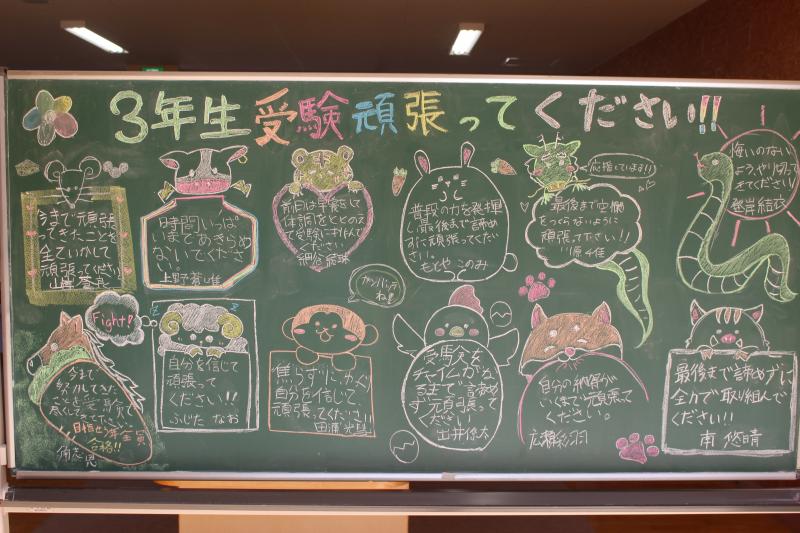 3年生受験頑張ってください!!
今まで頑張っ
てきたことを
全ていかして
頑張ってください
時間いっぱ
いまであきらめ
ないでくださ
い
上野蒼唯
前日は早寝をし
て体調をととのえ
て受験に挑んで
ください
普段の力を発揮
し最後まで諦め
ずに頑張ってくださ
い。
もとや このみ
応援しています!!
最後まで空欄
をつくらないように
頑張って下さい!!
川原千佳
悔いのない
よう、やり切って
きてください!
越岸結衣
Fight!
今まで
努力してきた
ことを受験で
尽くして
目指せ3年全員
合格!!
自分を信じて
頑張って
ください!!
ふじた なお
ガンバッテ
ね!
焦らずに
自分を信じて
頑張ってください!!
田浦光
受験久を
チャイムがな
るまで諦め
ず頑張って
ください
出井倖太
自分の納得が
いくまで頑張って
ください。
広橋彩羽
最後まで諦めずに
全力で取り組んで
ください!
南 悠晴